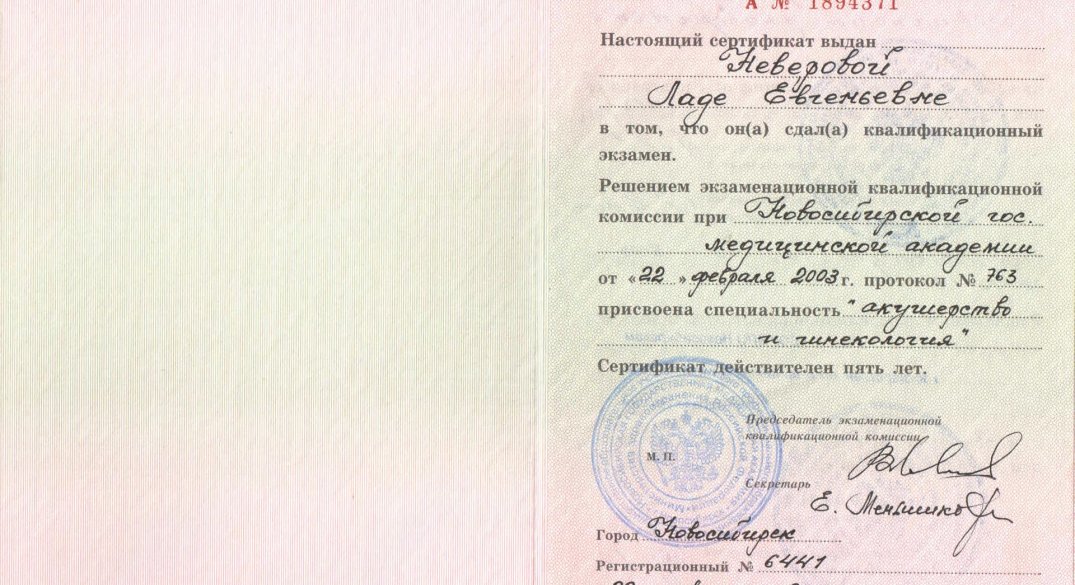 А № 1894371
Настоящий сертификат выдан
Неверовой
Ладе Евгеньевне
в том, что он(а) сдал(а) квалификационный
экзамен.
Решением экзаменационной квалификационной
комиссии при Новосибирской гос.
медицинской академии
от «22» февраля 2003 г. протокол № 763
присвоена специальность "акушерство
и гинекология"
Сертификат действителен пять лет.
Председатель экзаменационной
квалификационной комиссии
М. П.
Секретарь
Е. Меньшико
Город Новосибирск
Регистрационный № 6441